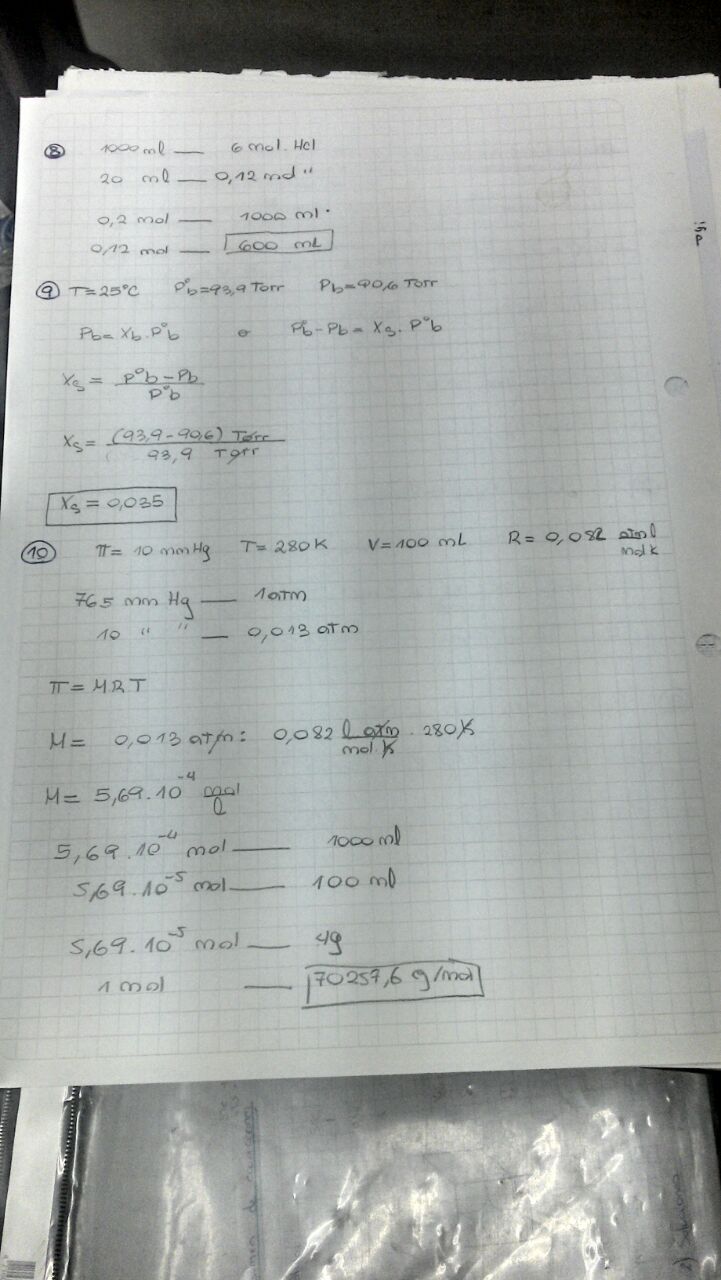 8 1000 ml — 6 mol. Hcl
20 ml — 0,12 mol "
0,2 mol — 1000 ml.
0,12 mol — 600 mL
9 T=25°C P°b=93,9 Torr Pb=90,6 Torr
Pb= Xb.P°b o P°b-Pb= Xs. P°b
Xs = P°b-Pb
P°b
Xs= (93,9-90,6) Torr
93,9 Torr
Xs = 0,035
10 π= 10 mmHg T=280K V=100 mL R= 0,082 atm l
mol k
765 mm Hg — 1atm
10 " " — 0,013 atm
π=MRT
M= 0,013 atm: 0,082 l atm . 280K
mol.K
M= 5,69.10⁻⁴ mol
l
5,69.10⁻⁴ mol — 1000 ml
5,69.10⁻⁵ mol — 100 ml
5,69.10⁻⁵ mol — 4g
1 mol — 70257,6 g/mol